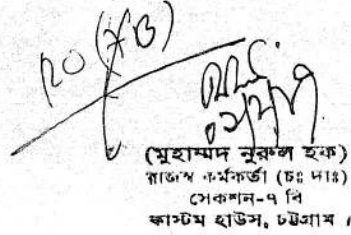 (মুহাম্মদ নুরুল হক)
রাজস্ব কর্মকর্তা (চঃ দাঃ)
সেকশন-৭ বি
কাস্টম হাউস, চট্টগ্রাম।